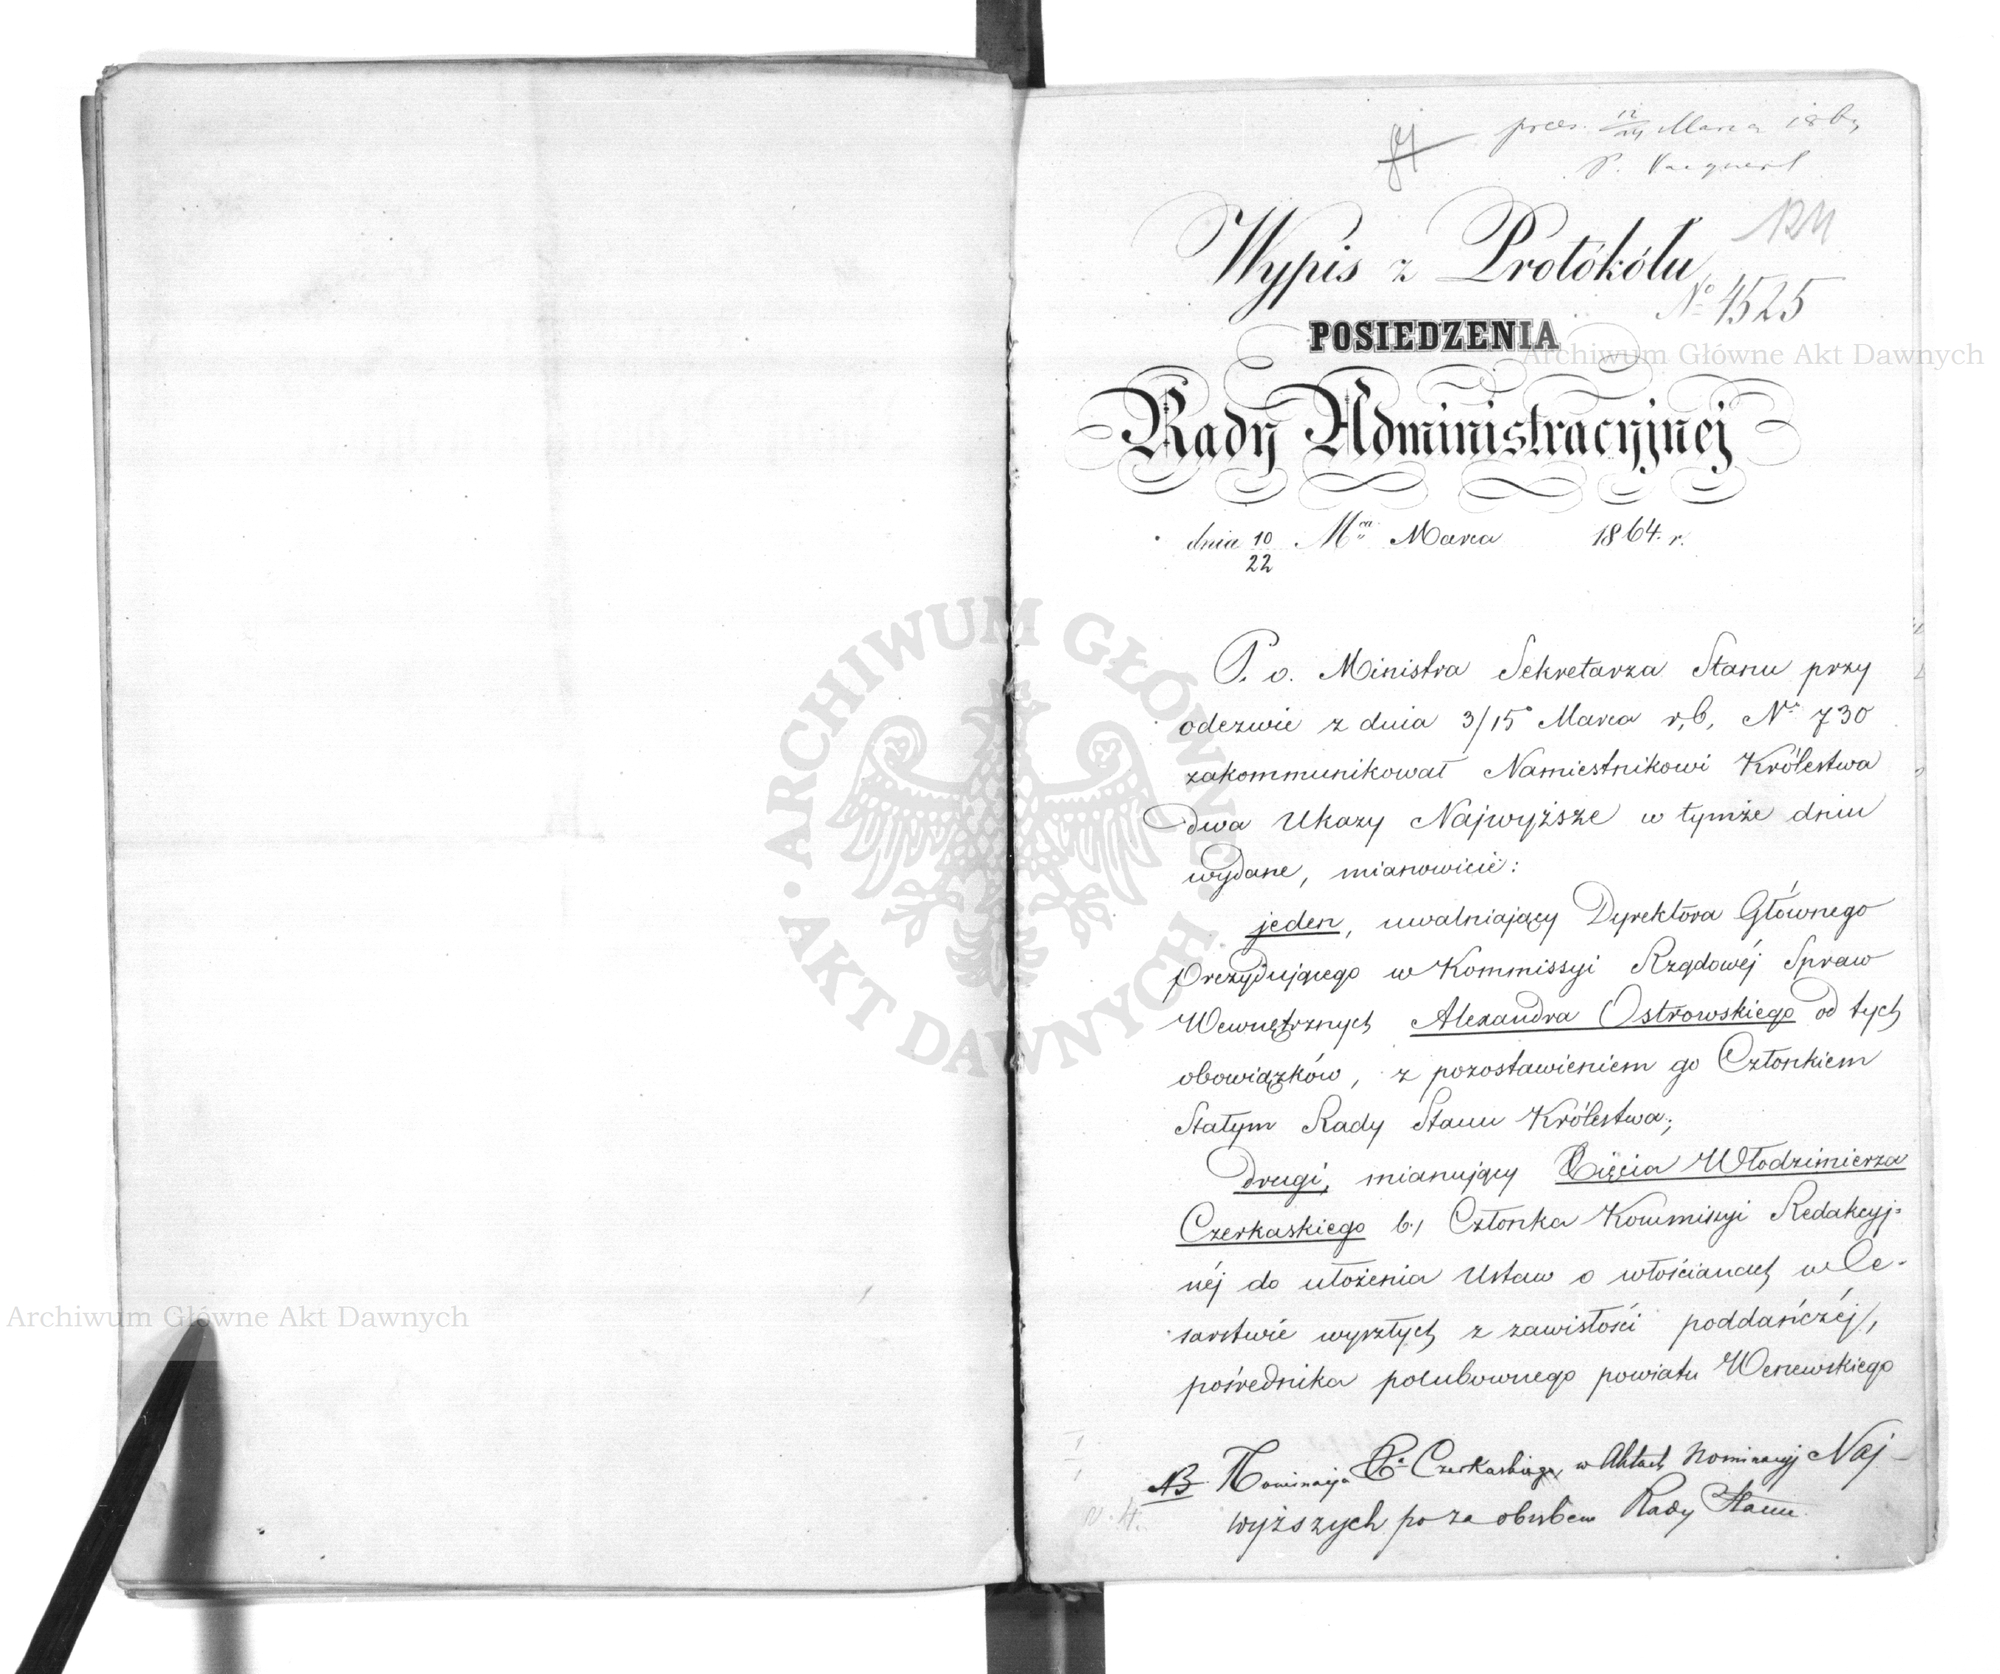 pres. 12/24 Marca 1864
Wypis z Protokółu
No 4525
POSIEDZENIA
Rady Administracyjnej
dnia 10/22 Mca Marca 1864. r.
P. o. Ministra Sekretarza Stanu przy
odezwie z dnia 3/15 Marca r. b. Nr 730
zakommunikował Namiestnikowi Królestwa
dwa Ukazy Najwyższe w tymże dniu
wydane, mianowicie:
jeden, uwalniający Dyrektora Głównego
Prezydującego w Kommissyi Rządowéj Spraw
Wewnętrznych Alexandra Ostrowskiego od tych
obowiązków, z pozostawieniem go Członkiem
Stałym Rady Stanu Królestwa;
drugi, mianujący Xięcia Włodzimierza
Czerkaskiego b. Członka Kommissyi Redakcyj=
néj do ułożenia Ustaw o włościanach w Ce-
sarstwie wyszłych z zawisłości poddańczéj,
pośrednika polubownego powiatu Weniewskiego
NB Nominacja Xa Czerkaskiego w Aktach Nominacyj Naj-
wyższych po za obrębem Rady Stanu
Archiwum Główne Akt Dawnych
ARCHIWUM GŁÓWNE AKT DAWNYCH
Archiwum Główne Akt Dawnych